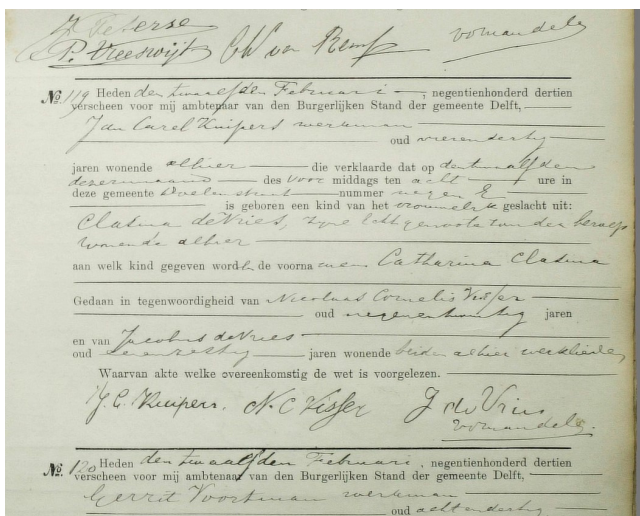 J Peterse
P. Vreeswijk
No. 119 Heden den twaalfden Februari, negentienhonderd dertien
verscheen voor mij ambtenaar van den Burgerlijken Stand der gemeente Delft,
Jan Carel Kuipers werkman
oud vierendertig
jaren wonende alhier die verklaarde dat op den twaalfden
dezer maand des voor middags ten acht ure in
deze gemeente Doelenstraat nummer negen
is geboren een kind van het vrouwelijk geslacht uit:
Clasina de Vries, zijne Echtgenoote zonder beroep
wonende alhier
aan welk kind gegeven wordt de voorna men Catharina Clasina
Gedaan in tegenwoordigheid van Nicolaas Cornelis Visser
oud jaren
en van Jacobus de Vries
oud jaren wonende beiden alhier werklieden
Waarvan akte welke overeenkomstig de wet is voorgelezen.
J. C. Kuipers. N. C Visser J de Vries
No. 120 Heden den twaalfden Februari, negentienhonderd dertien
verscheen voor mij ambtenaar van den Burgerlijken Stand der gemeente Delft,
Gerrit Voortman werkman
oud achtendertig